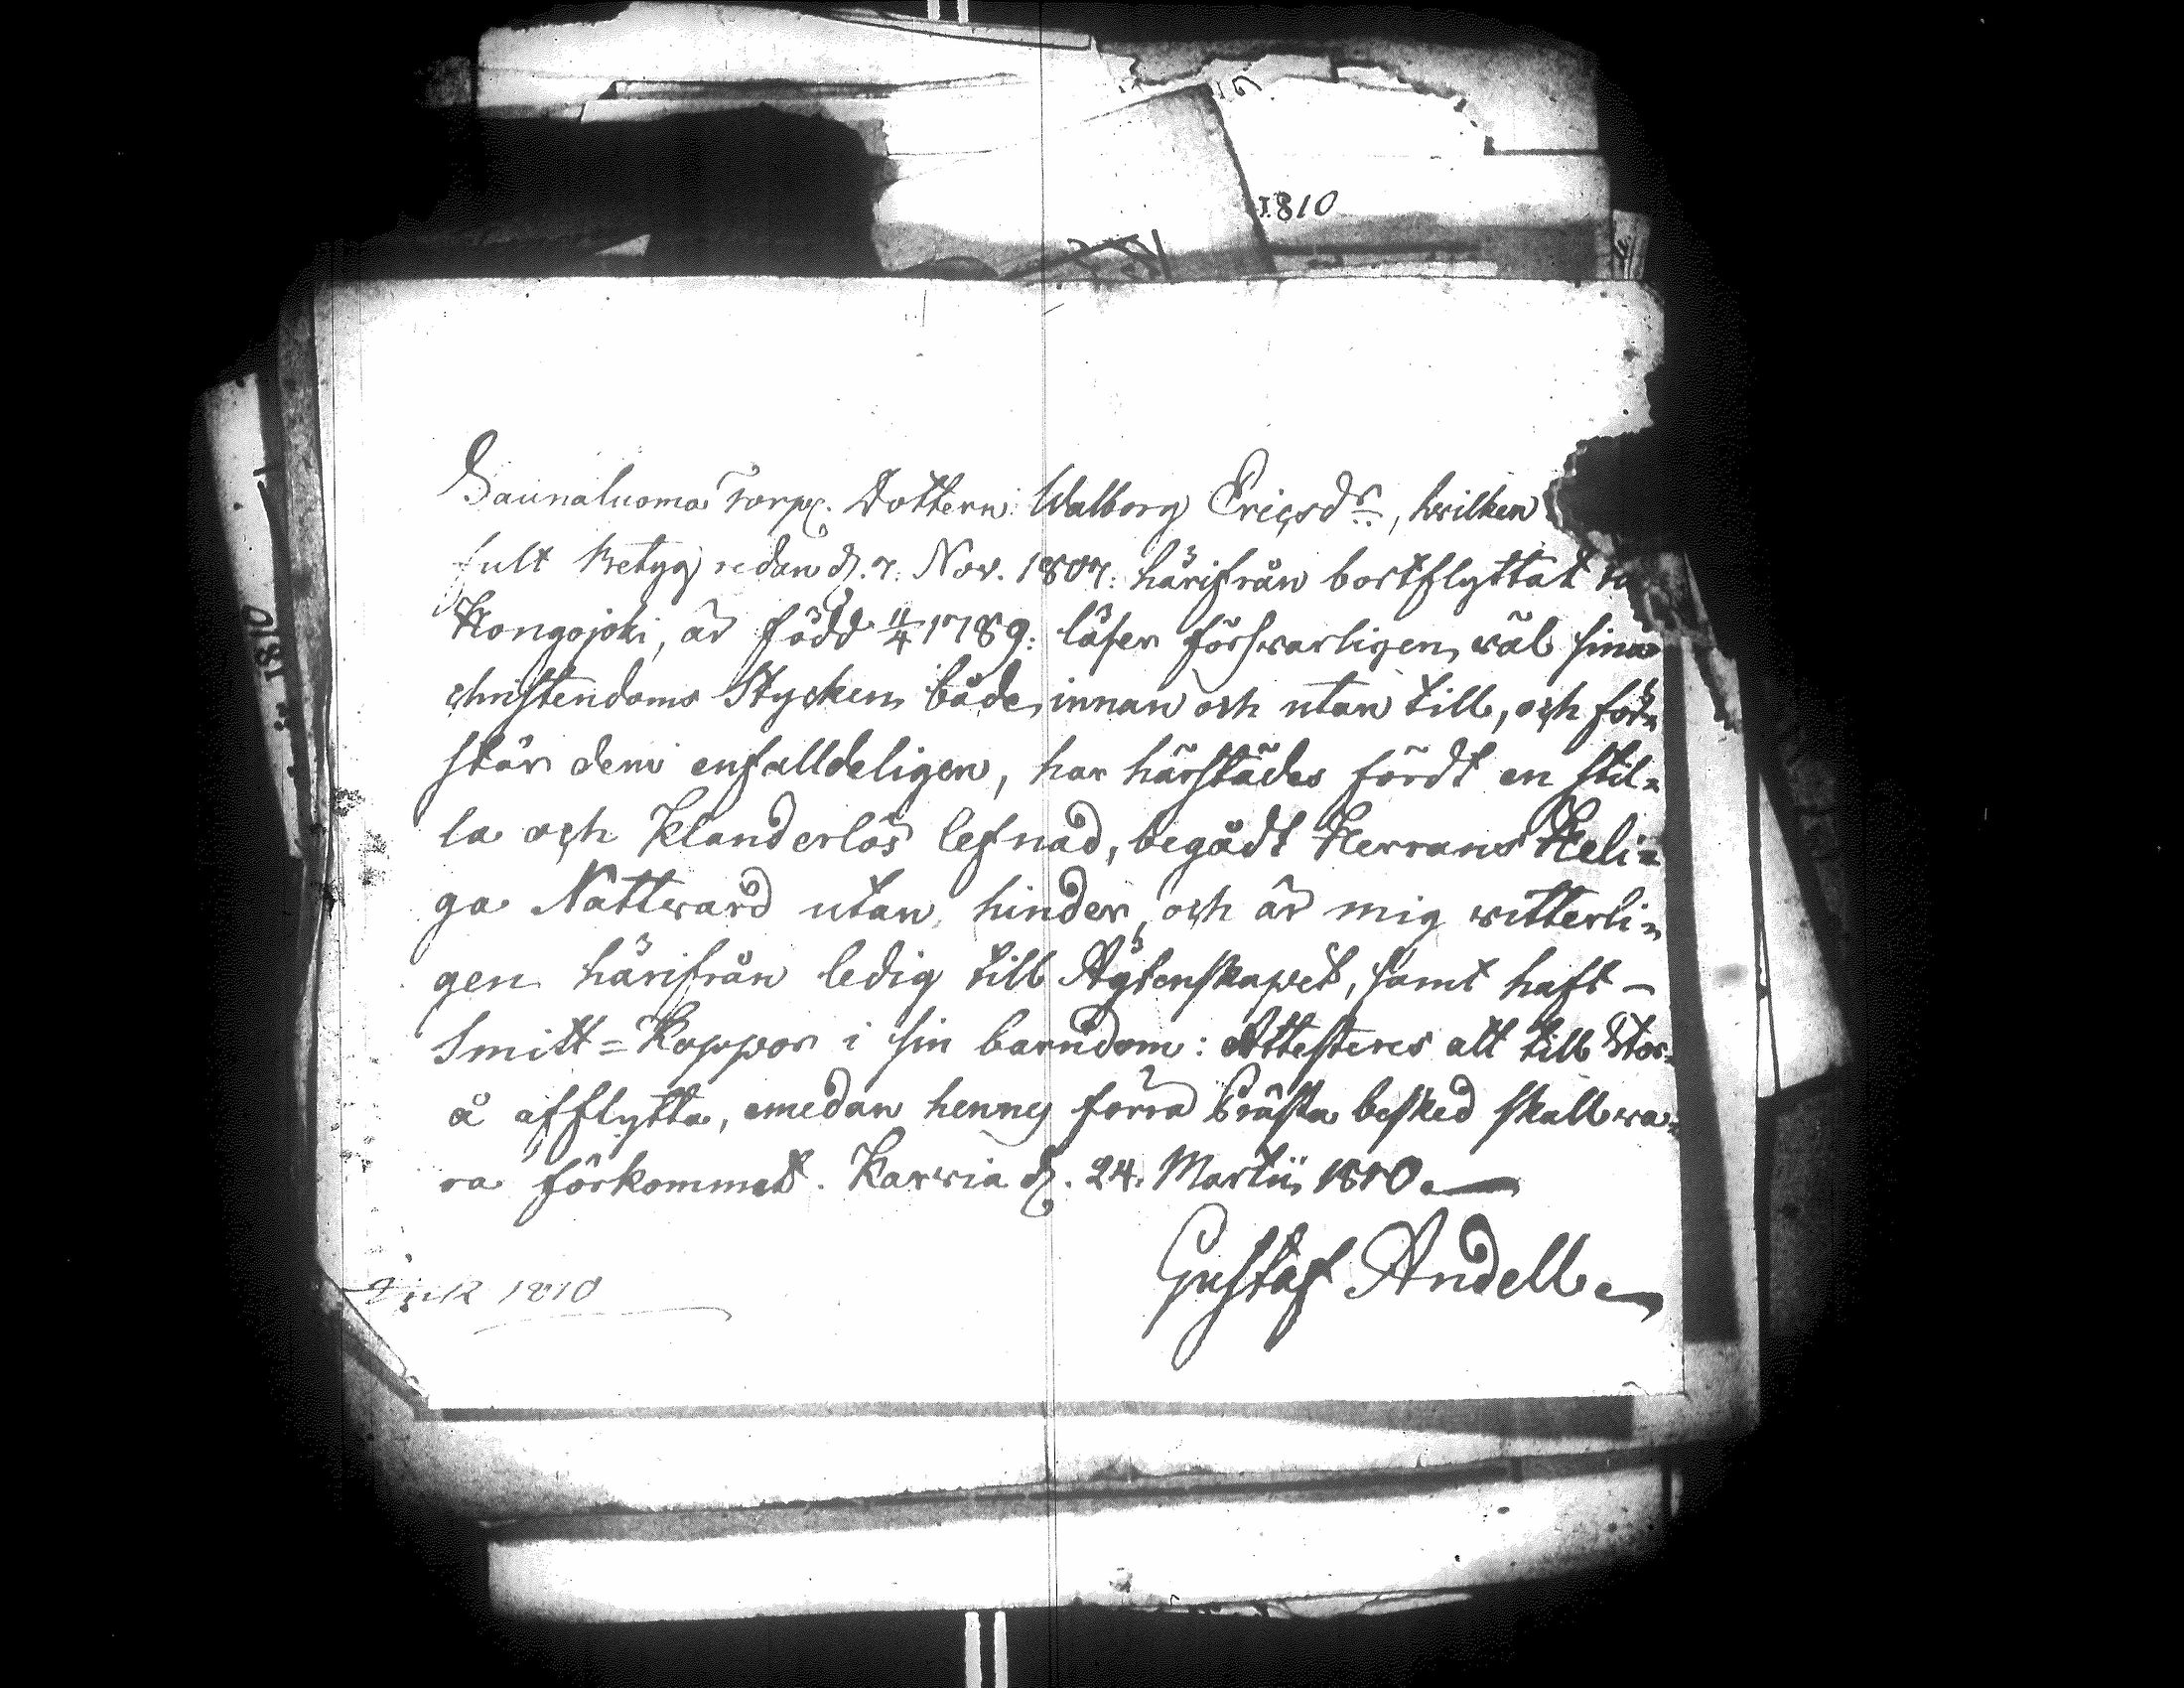 1810
1810
Saunaluoma Torp. Dottern Walborg Ericsdr, hwilken
fult Betyg redan d. 7. Nov. 1807. härifrån bortflyttat
Kongojoki, är född 11/4 1789. läser förswarligen wäl sina
christendoms Stycken både innan och utan till, och för=
står dem enfalldeligen, har härstädes fördt en stil=
la och Klanderlös lefnad, begådt Herrans Heli=
ga Nattward utan hinder, och är mig witterli=
gen härifrån ledig till Ägtenskapet, samt haft -
Smitt=Koppor i sin barndom: Attesteres att till Stor=
å afflytta, emedan hennes förra Prästa besked skall wa=
ra förkommet. Karvia d. 24. Martii 1810.
Gustaf Andell
1810